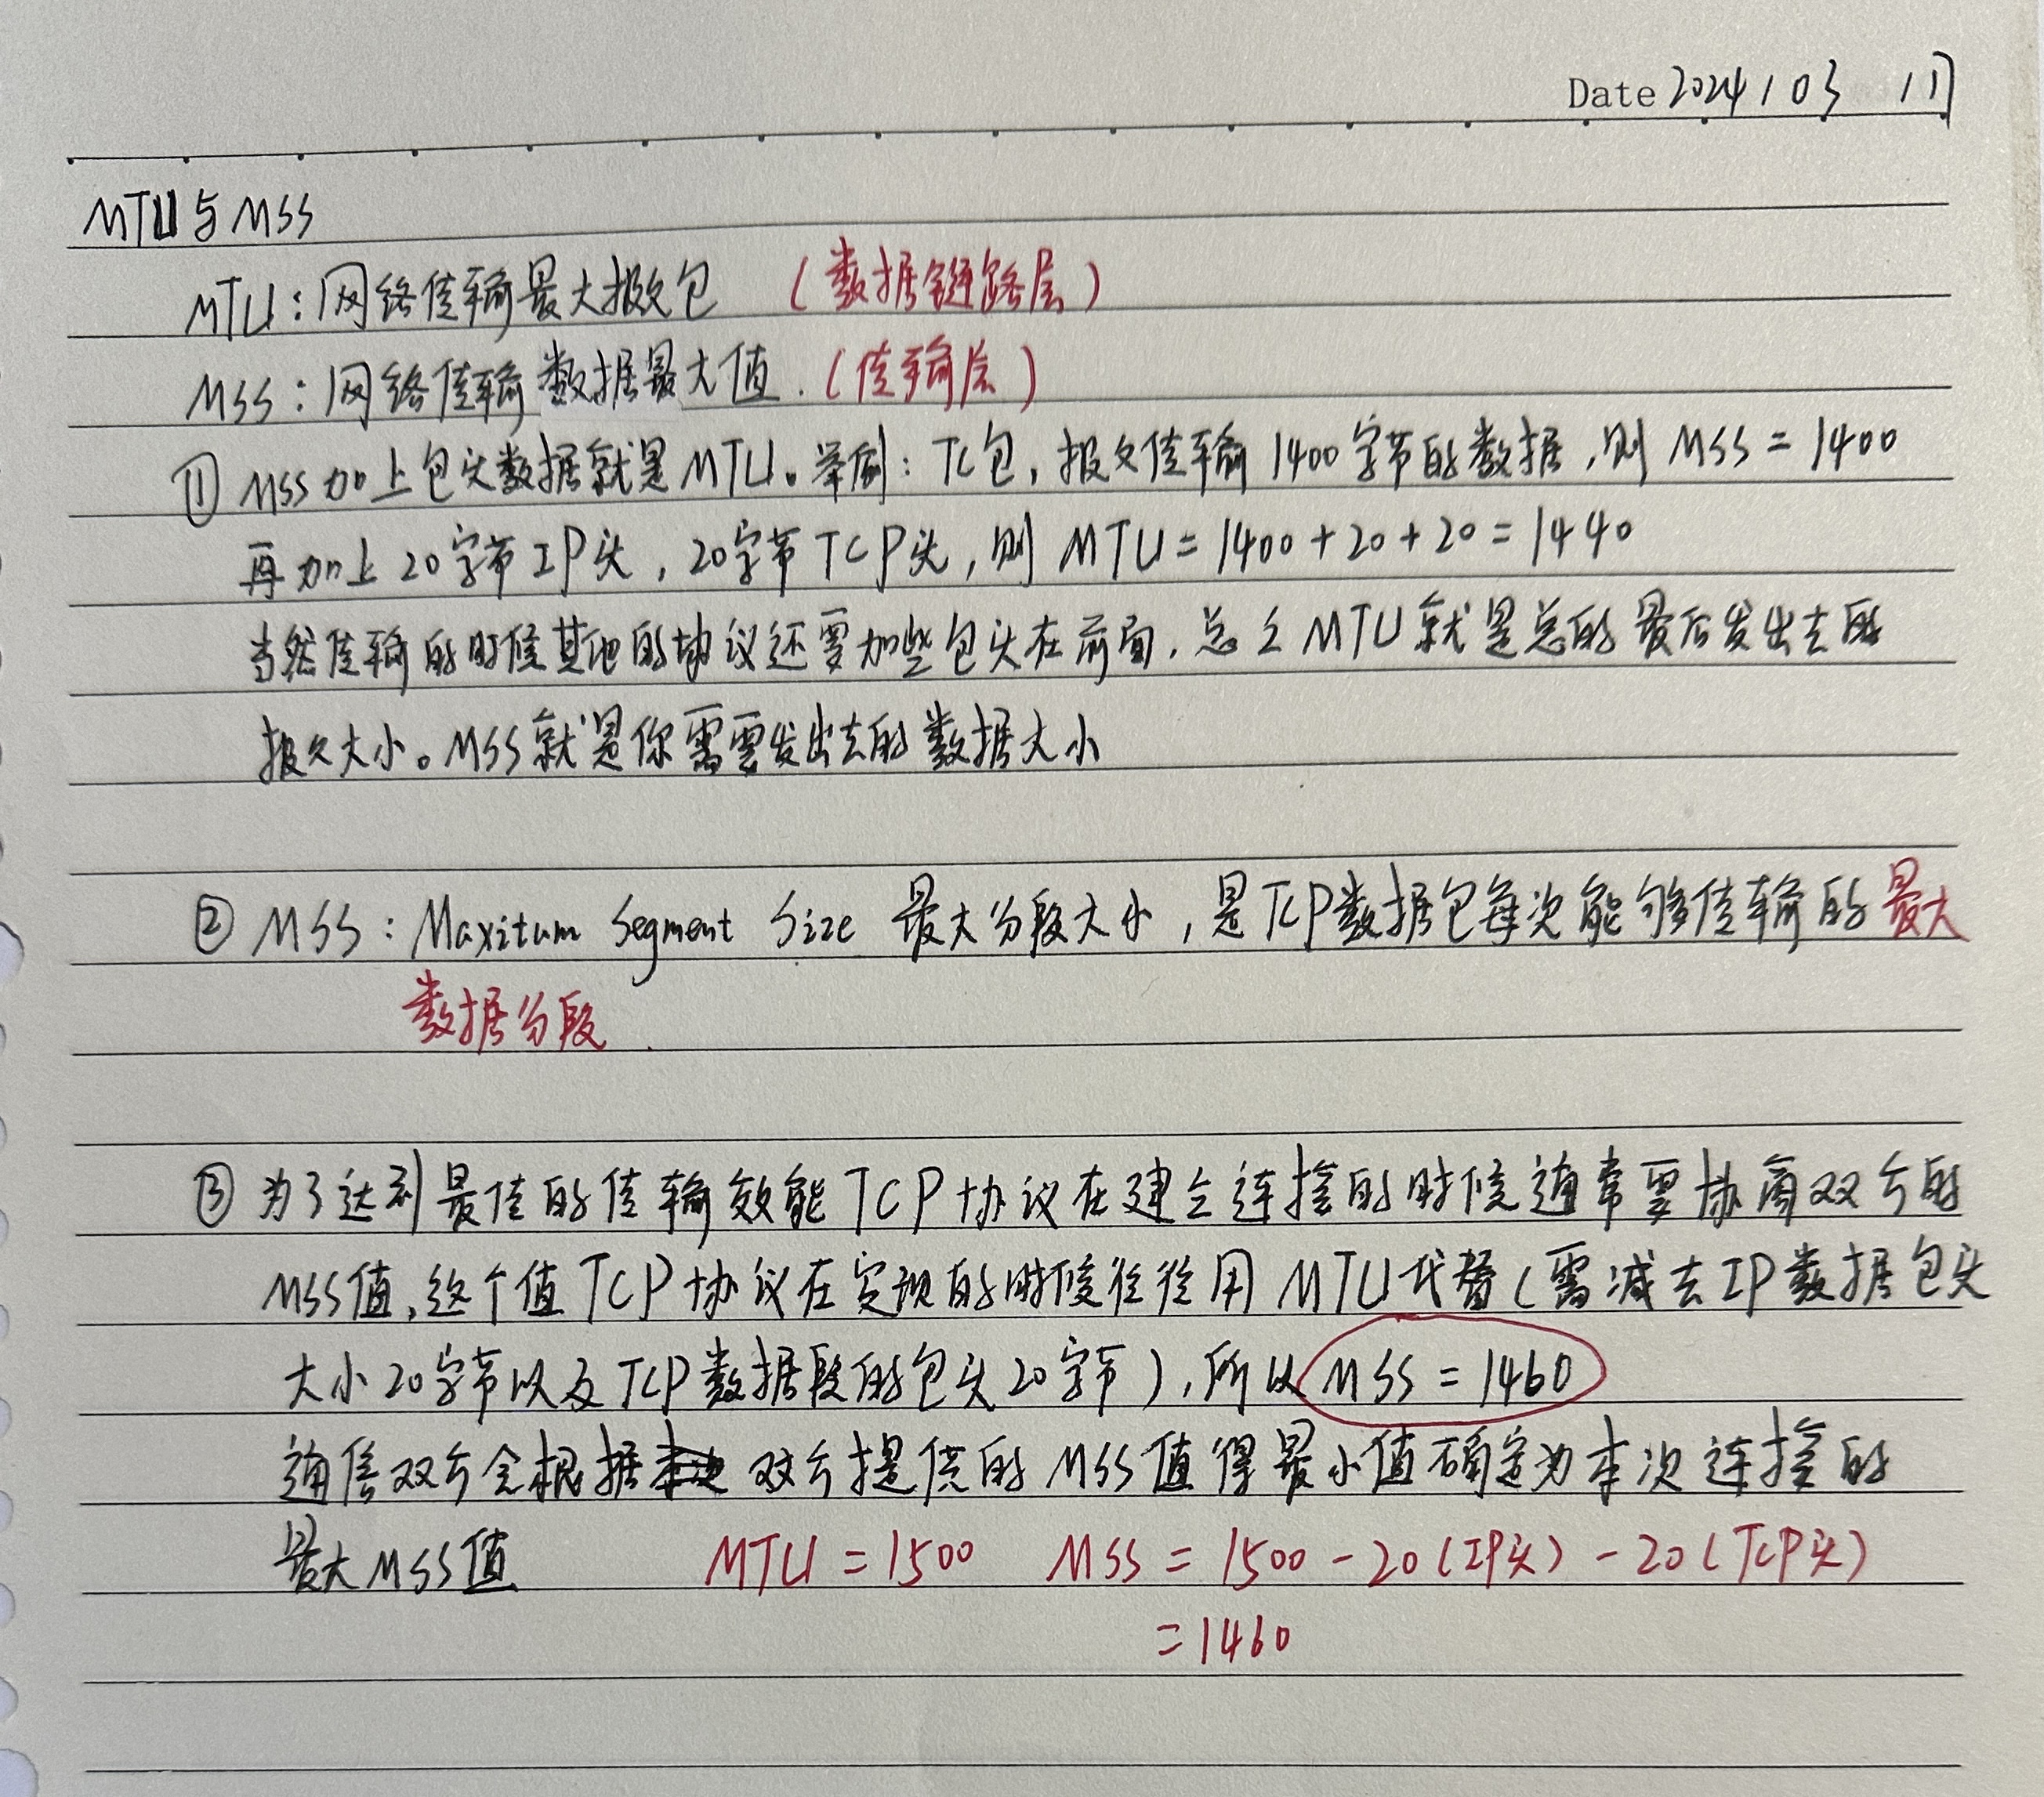 Date 2024 / 03 / 17
MTU与MSS
MTU:网络传输最大报文包 (数据链路层)
MSS:网络传输数据最大值.(传输层)
① MSS加上包头数据就是MTU。举例:TC包,报文传输1400字节的数据,则MSS=1400
再加上20字节IP头,20字节TCP头,则MTU=1400+20+20=1440
当然传输的时候其他的协议还要加些包头在前面,总之MTU就是总的最后发出去的
报文大小。MSS就是你需要发出去的数据大小
② MSS:Maxitum Segment Size 最大分段大小,是TCP数据包每次能够传输的最大
数据分段.
③ 为了达到最佳的传输效能TCP协议在建立连接的时候通常要协商双方的
MSS值,这个值TCP协议在实现的时候往往用MTU代替(需减去IP数据包头
大小20字节以及TCP数据段的包头20字节),所以MSS=1460
通信双方会根据双方提供的MSS值得最小值确定为本次连接的
最大MSS值 MTU=1500 MSS=1500-20(IP头)-20(TCP头)
=1460